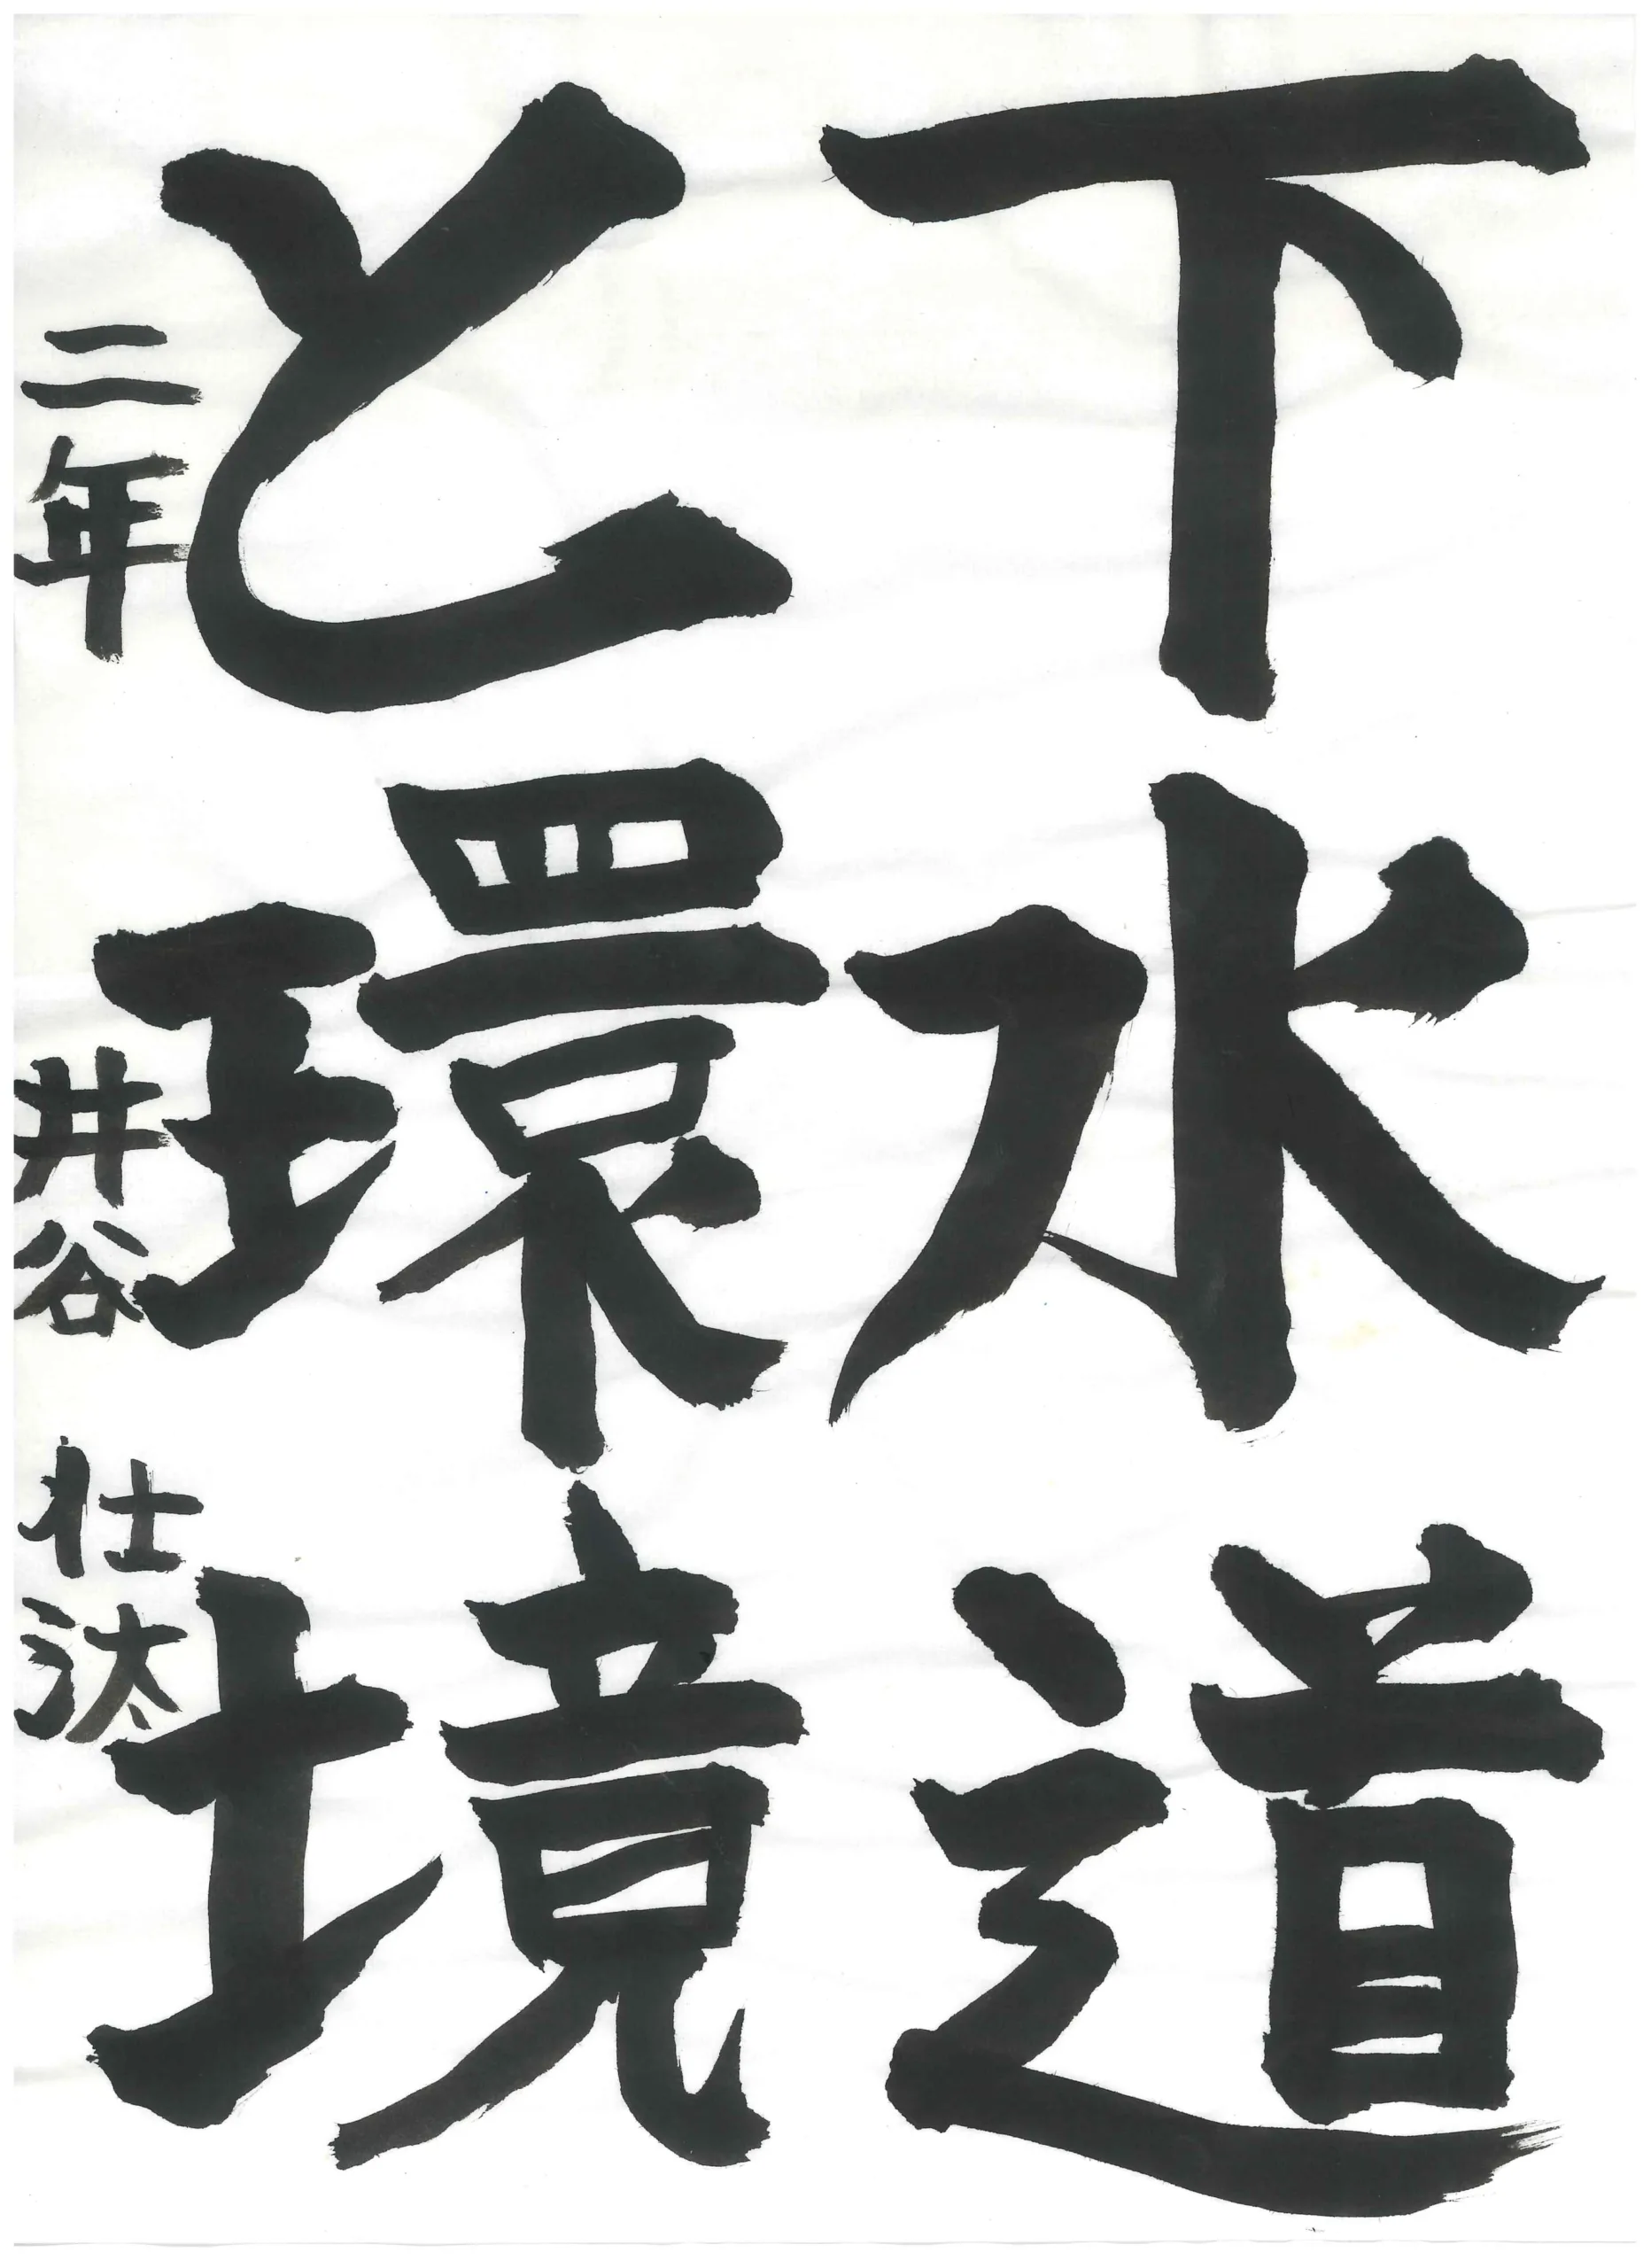 下水道
と環境
二年 井谷 仕汰